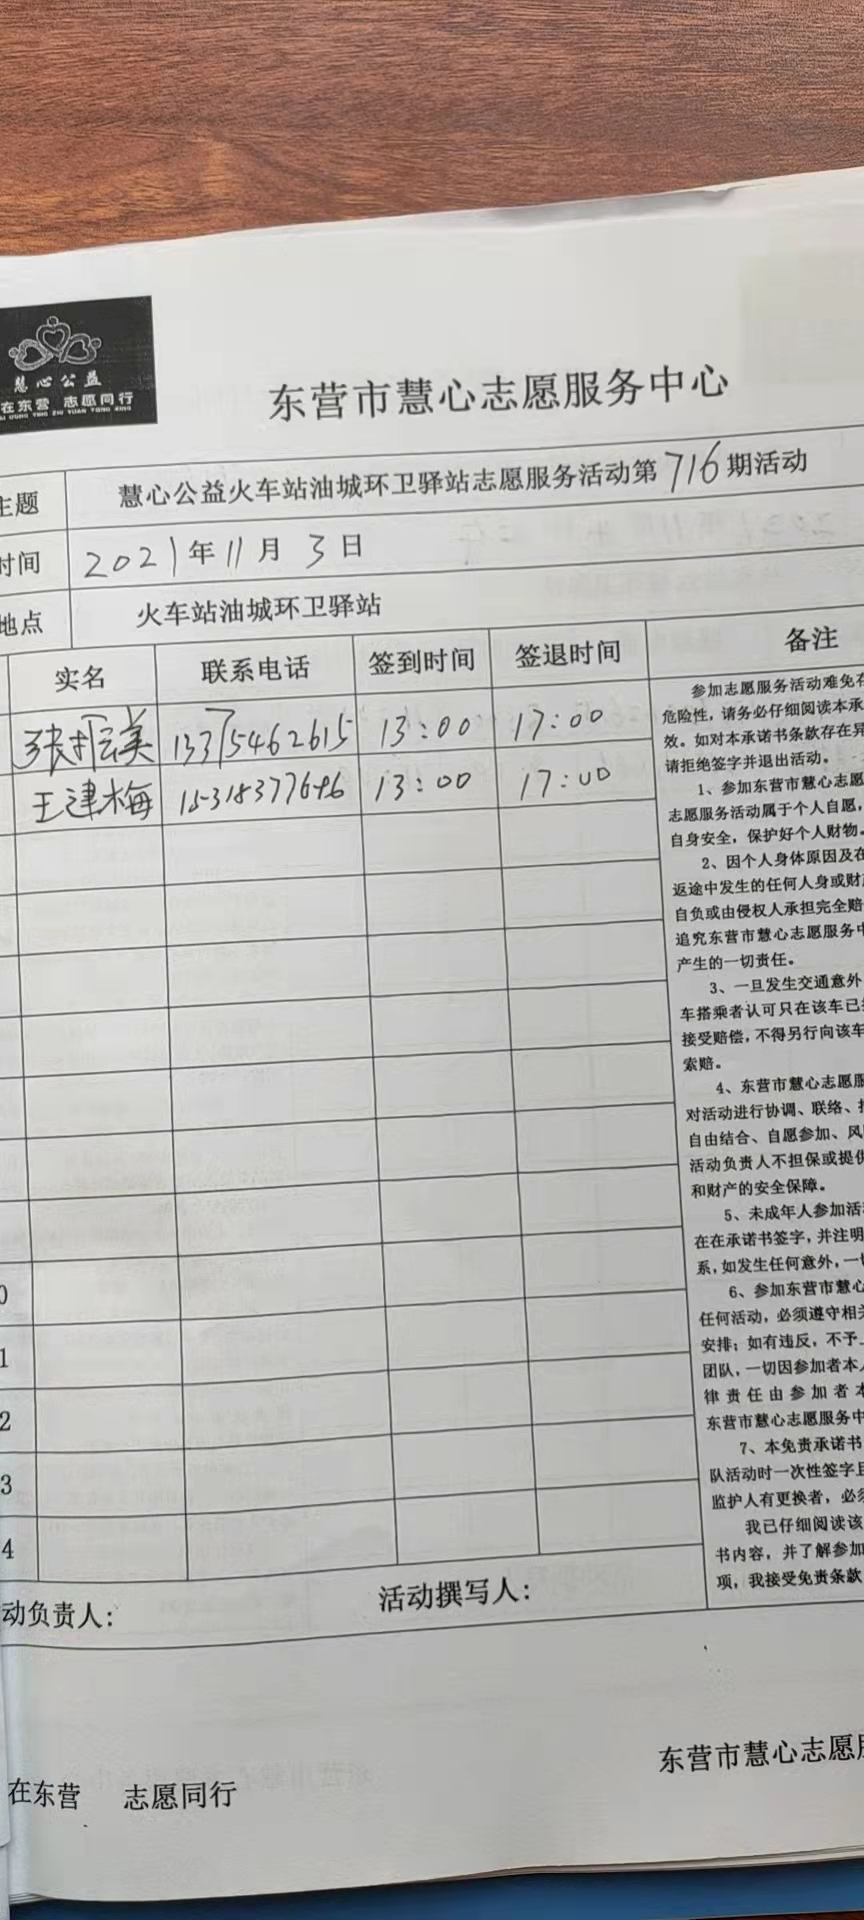 慧心公益
在东营 志愿同行
东营市慧心志愿服务中心
主题 慧心公益火车站油城环卫驿站志愿服务活动第716期活动
时间 2021年11月3日
地点 火车站油城环卫驿站
实名 联系电话 签到时间 签退时间 备注
张 美 13375462615 13:00 17:00
王津梅 13:00 17:00
参加志愿服务活动难免存
危险性，请务必仔细阅读本承
效。如对本承诺书条款存在异
请拒绝签字并退出活动。
1、参加东营市慧心志愿
志愿服务活动属于个人自愿，
自身安全，保护好个人财物。
2、因个人身体原因及在
返途中发生的任何人身或财产
自负或由侵权人承担完全赔
追究东营市慧心志愿服务中
产生的一切责任。
3、一旦发生交通意外
车搭乘者认可只在该车已
接受赔偿，不得另行向该车
索赔。
4、东营市慧心志愿服
对活动进行协调、联络、
自由结合、自愿参加、风
活动负责人不担保或提供
和财产的安全保障。
5、未成年人参加活
在在承诺书签字，并注明
系，如发生任何意外，一切
6、参加东营市慧心
任何活动，必须遵守相关
安排；如有违反，不予
团队，一切因参加者本人
律责任由参加者本
东营市慧心志愿服务中
7、本免责承诺书
队活动时一次性签字且
监护人有更换者，必须
我已仔细阅读该
书内容，并了解参加
项，我接受免责条款
0
1
2
3
4
动负责人： 活动撰写人：
在东营 志愿同行 东营市慧心志愿服